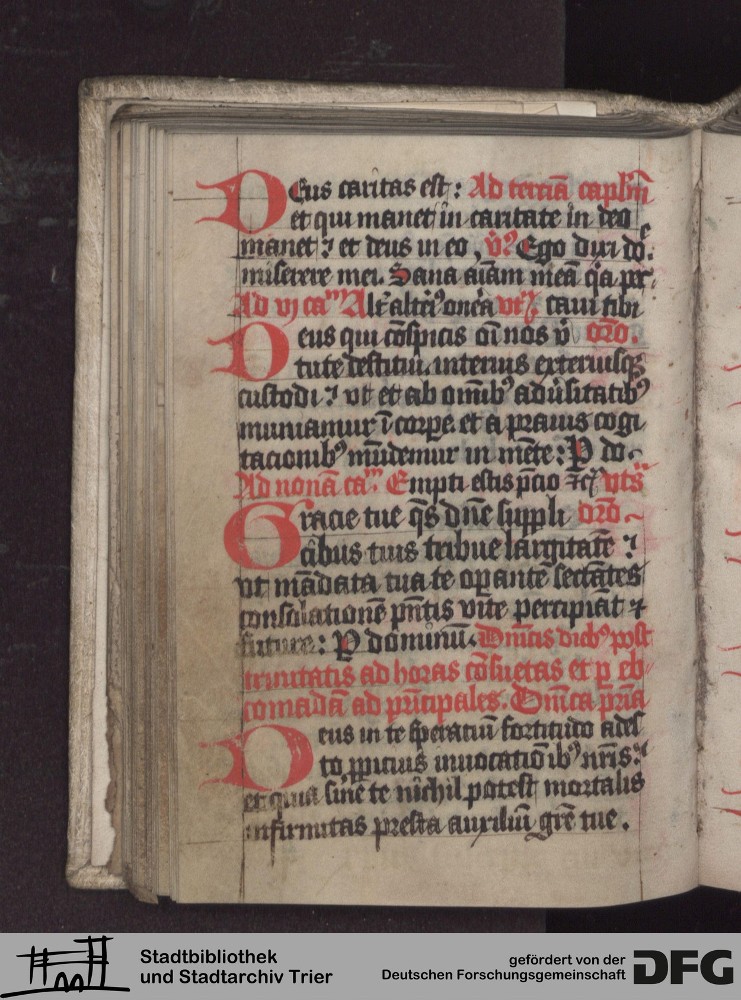 Deus caritas est: Ad terciā capl'm
et qui manet in caritate in deo
manet ⁊ et deus in eo, v̓ꝰ Ego dixi do.
miserere mei. Sana aīam meā q̓a pr̄.
Ad vj caᵐ Alt̓ alteriꝰ on̓a caui tibi
Deus qui cōspicis oī nos v̓ or̄o.
tute destitui. interius exteriusqꝫ
custodi ⁊ vt et ab om̄ibꝰ adu̓sitatibꝰ
muniamur ī corpe. et a prauis cogi
tacionibꝰ mūdemur in mēte: P do.
Ad nonā caᵐ. Empti estis p̄cio ⁊c̄
Gracie tue q̄s dn̄e suppli or̄o.
cibus tuis tribue largitatē ⁊
vt mādata tua te opantē sectātes
consolationē pn̄tis vite percipiāt ⁊
future: P dominū. Dn̄icis diebꝰ post
trinitatis ad horas cōsuetas et p eb
comadā ad pn̄cipales. Dn̄ica pria
Deus in te speratiū fortitudo ades
to ppicius inuocatiōibꝰ nr̄is:
et quia sine te nichil potest mortalis
infirmitas presta auxiliū grē tue.
Stadtbibliothek
und Stadtarchiv Trier
gefördert von der
Deutschen Forschungsgemeinschaft DFG